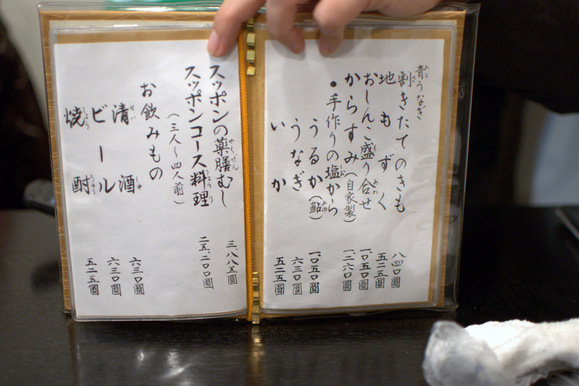 青うなぎ
割きたてのきも 八四〇圓
地もずく 五二五圓
おしんこ盛り合せ 一〇五〇圓
からすみ(自家製) 一二六〇圓
●手作りの塩から
うるか(鮎) 一〇五〇圓
うなぎ 六三〇圓
いか 五二五圓
スッポンの薬膳むし 三、八八五圓
スッポンコース料理 二五、二〇〇圓
(三人〜四人前)
お飲みもの
清酒 六三〇圓
ビール 六三〇圓
焼酎 五二五圓